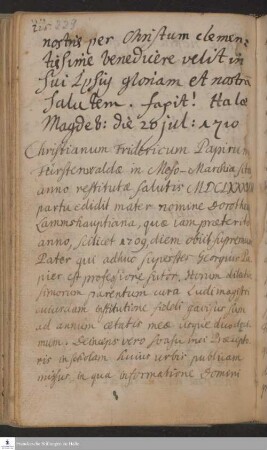 229
nostris per Christum clemen-
tissime benedicere velit in
Sui Ipsius gloriam et nostra
Salutem. faxit! Halae
Magdeb: die 26 jul: 1710
Christianum Fridericum
Fürstenwaldae in Meso-Marchia sita
anno restitutae salutis
partu edidit mater nomine Dorothea
Lammshauptiana, quae jam praeterito
anno, scilicet 1709, diem obiit supremum
Pater qui adhuc superstes Georgius Pa-
pier est professione sutor. Horum dilectis-
simorum parentum cura Ludimagistri
cujusdam institutione fideli gavisus sum
ad annum aetatis meae usque duodeci-
mum. Deinceps vero
in scholam hujus urbis publicam
missus, in qua informatione Domini